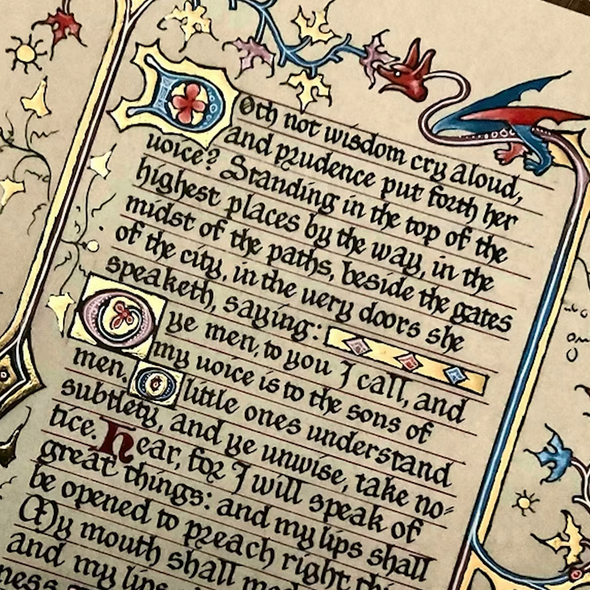 Doth not wisdom cry aloud,
and prudence put forth her
voice? Standing in the top of the
highest places by the way, in the
midst of the paths, beside the gates
of the city, in the very doors she
speaketh, saying:
O ye men, to you I call, and
my voice is to the sons of
men. O little ones understand
subtlety, and ye unwise, take no=
tice. Hear, for I will speak of
great things: and my lips shall
be opened to preach right
My mouth shall
and my lips